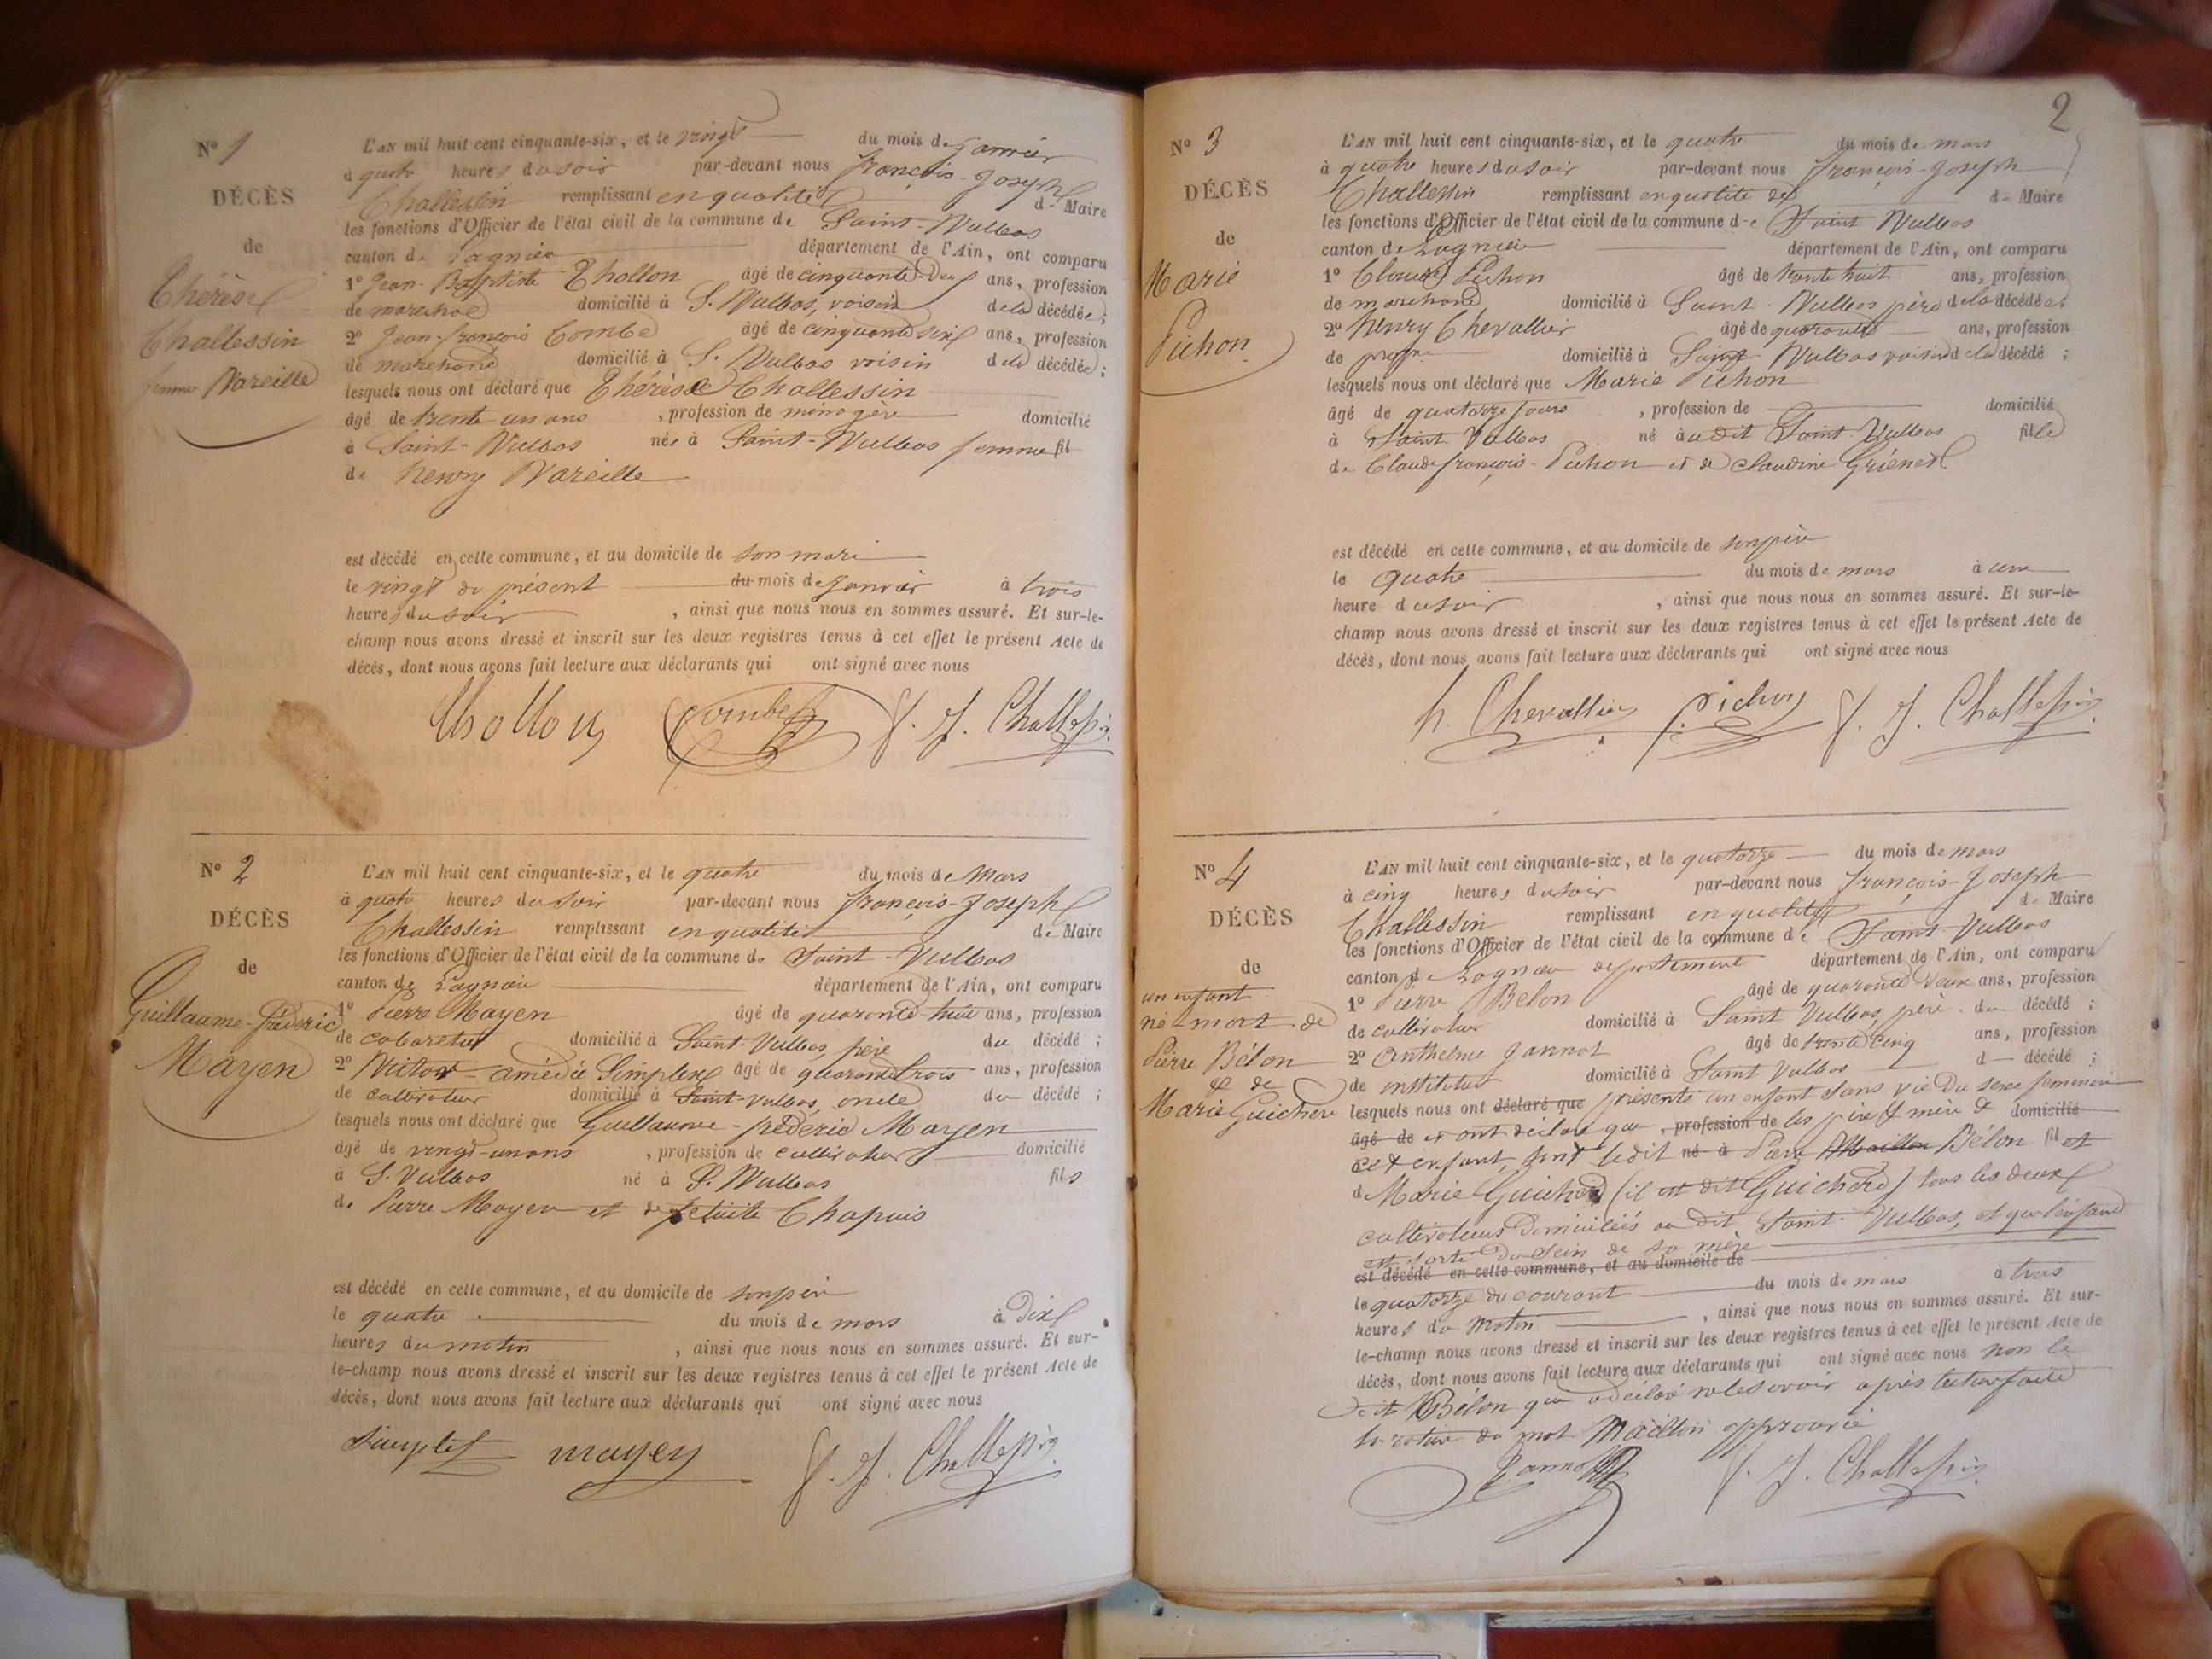 N° 1
DÉCÈS
de
Thérèse
Challessin
femme Vareille
L'AN mil huit cent cinquante-six, et le vingt du mois de Janvier
à quatre heures du soir par-devant nous François-Joseph
Challessin remplissant en qualité de Maire
les fonctions d'Officier de l'état civil de la commune de Saint-Vulbas
canton de Lagnieu département de l'Ain, ont comparu
1° Jean-Baptiste Thollon âgé de cinquante-deux ans, profession
de marechal domicilié à S. Vulbas, voisin de la décédée;
2° Jean-françois Combe âgé de cinquante six ans, profession
de marchand domicilié à S. Vulbas voisin de la décédée;
lesquels nous ont déclaré que Thérèse Challessin
âgé de trente un ans, profession de ménagère domicilié
à Saint-Vulbas née à Saint-Vulbas femme fil
de henry Vareille
est décédé en cette commune, et au domicile de son mari
le vingt du présent du mois de Janvier à trois
heures du soir, ainsi que nous nous en sommes assuré. Et sur-le-
champ nous avons dressé et inscrit sur les deux registres tenus à cet effet le présent Acte de
décès, dont nous avons fait lecture aux déclarants qui ont signé avec nous
Thollon Combe f. J. Challessin
N° 2
DÉCÈS
de
Guillaume-fréderic
Mayen
L'AN mil huit cent cinquante-six, et le quatre du mois de Mars
à quatre heures du soir par-devant nous françois-Joseph
Challessin remplissant en qualité de Maire
les fonctions d'Officier de l'état civil de la commune de Saint-Vulbas
canton de Lagnieu département de l'Ain, ont comparu
1° Pierre Mayen âgé de quarante-huit ans, profession
de cabaretier domicilié à Saint-Vulbas, père du décédé;
2° amédée Simplex âgé de quarante trois ans, profession
de cultivateur domicilié à Saint-Vulbas, oncle du décédé;
lesquels nous ont déclaré que Guillaume-fréderic Mayen
âgé de vingt-un ans, profession de cultivateur domicilié
à S. Vulbas né à S. Vulbas fils
de Pierre Mayen et de felicité Chapuis
est décédé en cette commune, et au domicile de son père
le quatre du mois de mars à Dix
heures du matin, ainsi que nous nous en sommes assuré. Et sur-
le-champ nous avons dressé et inscrit sur les deux registres tenus à cet effet le présent Acte de
décès, dont nous avons fait lecture aux déclarants qui ont signé avec nous
Simplex mayen f. J. Challessin
2
N° 3
DÉCÈS
de
Marie
Pichon
L'AN mil huit cent cinquante-six, et le quatre du mois de mars
à quatre heures du soir par-devant nous françois-Joseph
Challessin remplissant en qualité de de Maire
les fonctions d'Officier de l'état civil de la commune de Saint Vulbas
canton de Lagnieu département de l'Ain, ont comparu
1° Claude Pichon âgé de trente huit ans, profession
de marchand domicilié à Saint-Vulbas père de la décédée;
2° henry Chevallier âgé de quarante ans, profession
de domicilié à Saint Vulbas voisin de la décédé;
lesquels nous ont déclaré que Marie Pichon
âgé de quatorze jours, profession de domicilié
à Saint Vulbas né audit Saint-Vulbas fille
de Claude françois Pichon et de claudine
est décédé en cette commune, et au domicile de son père
le quatre du mois de mars à une
heure du soir, ainsi que nous nous en sommes assuré. Et sur-le-
champ nous avons dressé et inscrit sur les deux registres tenus à cet effet le présent Acte de
décès, dont nous avons fait lecture aux déclarants qui ont signé avec nous
h. Chevallier pichon f. J. Challessin
N° 4
DÉCÈS
de
un enfant
né-mort de
Pierre Bélon
& de
Marie Guichere
L'AN mil huit cent cinquante-six, et le quatorze du mois de mars
à cinq heures du soir par-devant nous françois-Joseph
Challessin remplissant en qualité de Maire
les fonctions d'Officier de l'état civil de la commune de Saint Vulbas
canton de Lagnieu département département de l'Ain, ont comparu
1° Pierre Belon âgé de quarante deux ans, profession
de cultivateur domicilié à Saint Vulbas, père du décédé;
2° Anthelme Jannot âgé de trente cinq ans, profession
de instituteur domicilié à Saint Vulbas d décédé;
lesquels nous ont déclaré que présenté un enfant sans vie du sexe feminin
âgé de et ont déclaré que, profession de les père & mère de domicilié
cet enfant, sont ledit né à Pierre Maillon Bélon fil et
d Marie Guichard (il est dit Guichere) tous les deux
cultivateurs domiciliés au dit Saint-Vulbas, et que l'enfant
est sorti du sein de sa mère
est décédé en cette commune, et au domicile de
le quatorze du courant du mois de mars à trois
heures du matin, ainsi que nous nous en sommes assuré. Et sur-
le-champ nous avons dressé et inscrit sur les deux registres tenus à cet effet le présent Acte de
décès, dont nous avons fait lecture aux déclarants qui ont signé avec nous non le
dit Bélon qui a déclaré ne le savoir après lecture faite
la rature du mot Maillon approuvée
Jannot f. J. Challessin